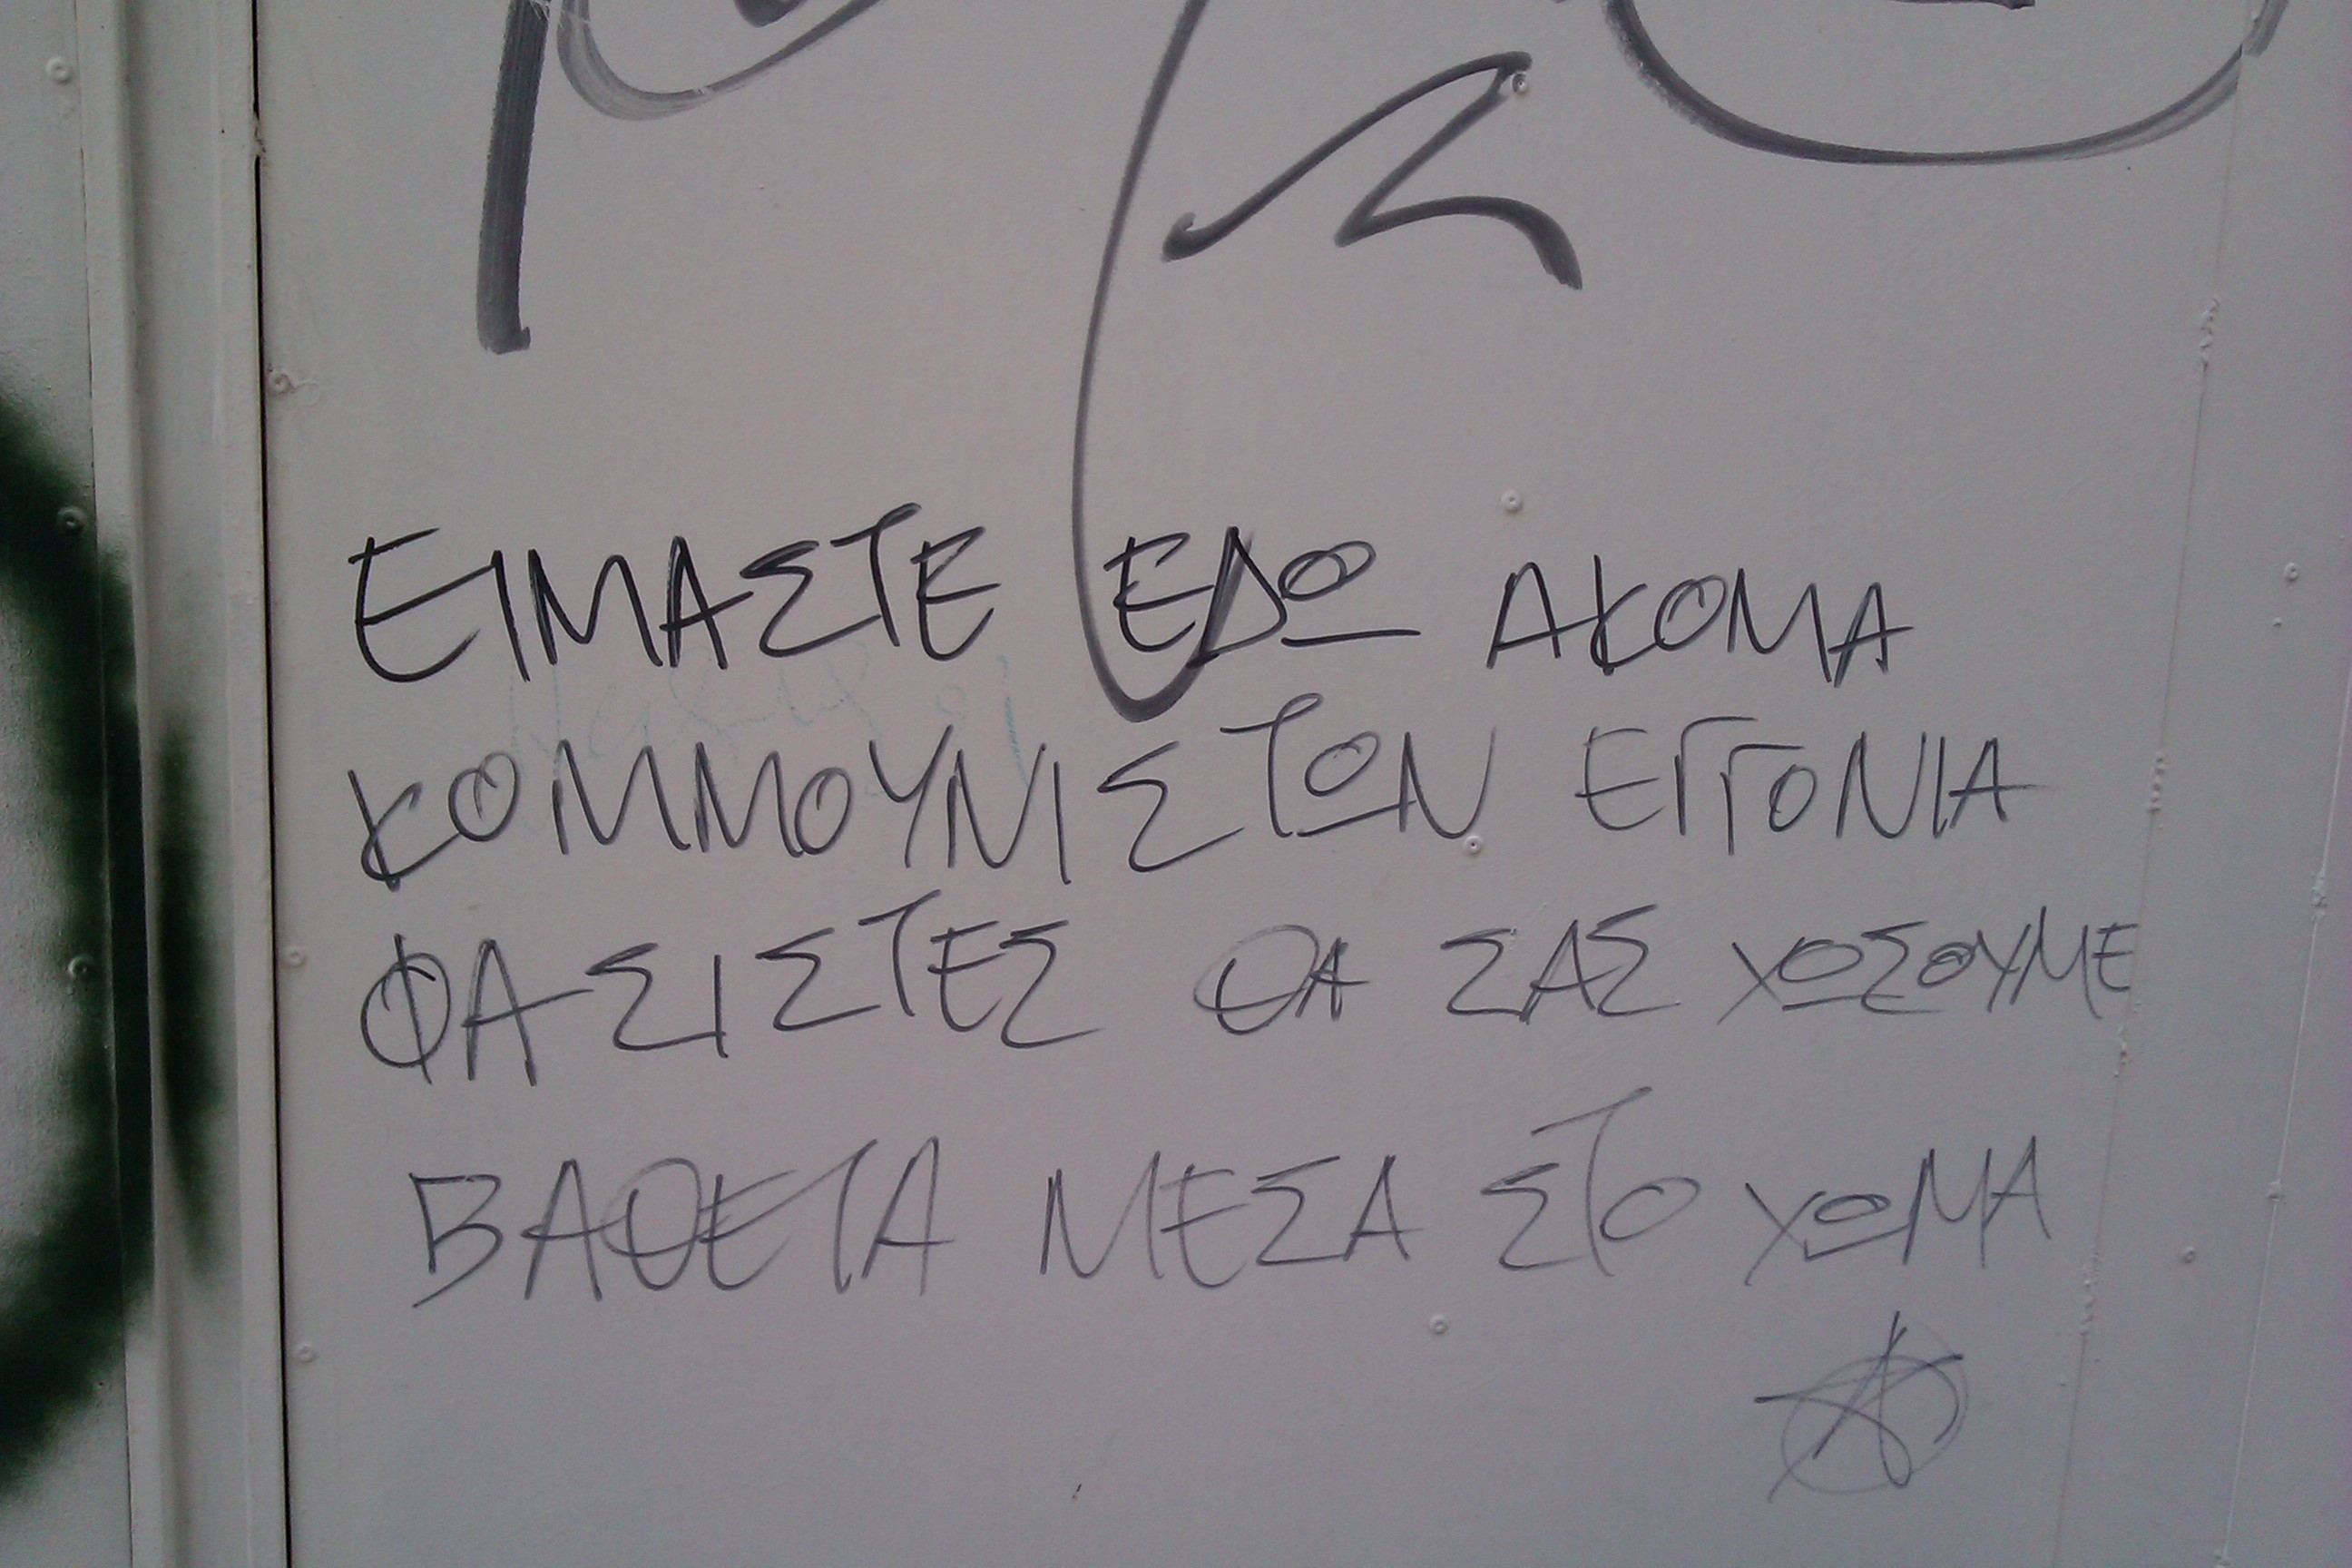 ΕΙΜΑΣΤΕ ΕΔΩ ΑΚΟΜΑ
ΚΟΜΜΟΥΝΙΣΤΩΝ ΕΓΓΟΝΙΑ
ΦΑΣΙΣΤΕΣ ΘΑ ΣΑΣ ΧΩΣΟΥΜΕ
ΒΑΘΕΙΑ ΜΕΣΑ ΣΤΟ ΧΩΜΑ